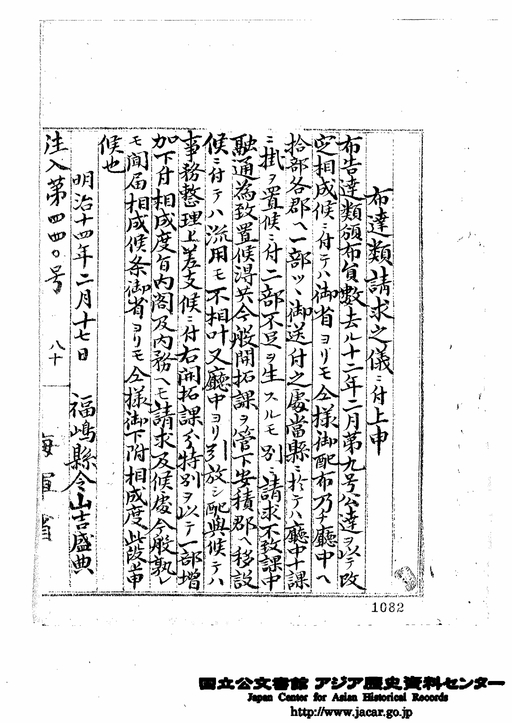 布達類請求之儀ニ付上申
布告達類頒布員數去ル十二年二月第九号公達ヲ以テ改
定相成候ニ付テハ御省ヨリモ仝様御配布乃チ廳中ヘ
拾部各郡ヘ一部ツヽ御送付之處當縣ニ於テハ廳中十課
ニ掛ヲ置候ニ付二部不足ヲ生スルモ別ニ請求不致課中
融通為致置候得共今般開拓課ヲ管下安積郡ヘ移設
候ニ付テハ流用モ不相叶又廳中ヨリ引放シ配與候テハ
事務整理上差支候ニ付右開拓課分特別ヲ以テ一部増
加下付相成度旨内閣及内務ヘモ請求及候處今般孰レ
モ聞届相成候条御省ヨリモ仝様御下附相成度此段上申
候也
明治十四年二月十七日 福嶋縣令山吉盛典
注入第四四〇号 八十 海軍省
1082
国立公文書館 アジア歴史資料センター
Japan Center for Asian Historical Records
http://www.jacar.go.jp